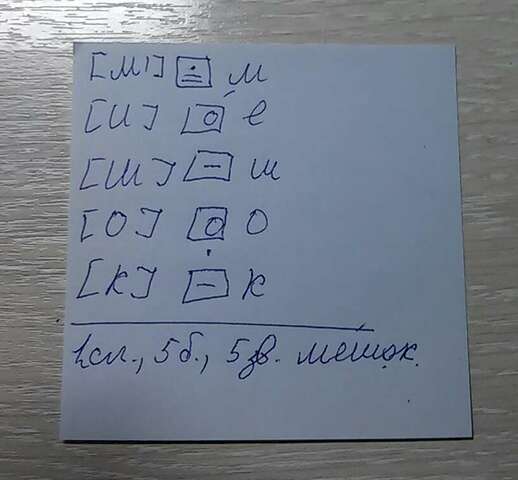 [М'] м
[И] е
[Ш] ш
[О] о
[К] к
2 сл., 5 б., 5 зв. мешок.